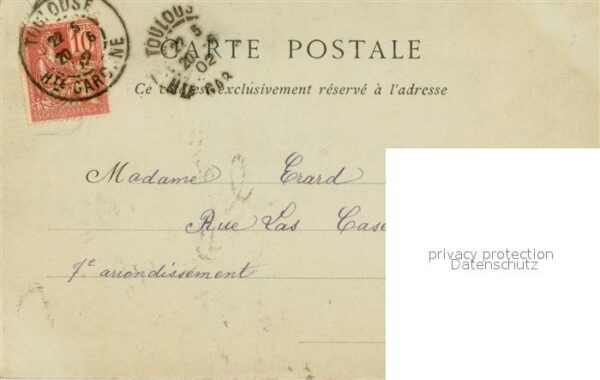 TOULOUSE
22 5
20 6
HTE GARONNE
10
TOULOUSE
22 5
20
02
GAR
CARTE POSTALE
Ce côté est exclusivement réservé à l'adresse
Madame Erard
Rue Las Case
7e arrondissement
privacy protection
Datenschutz